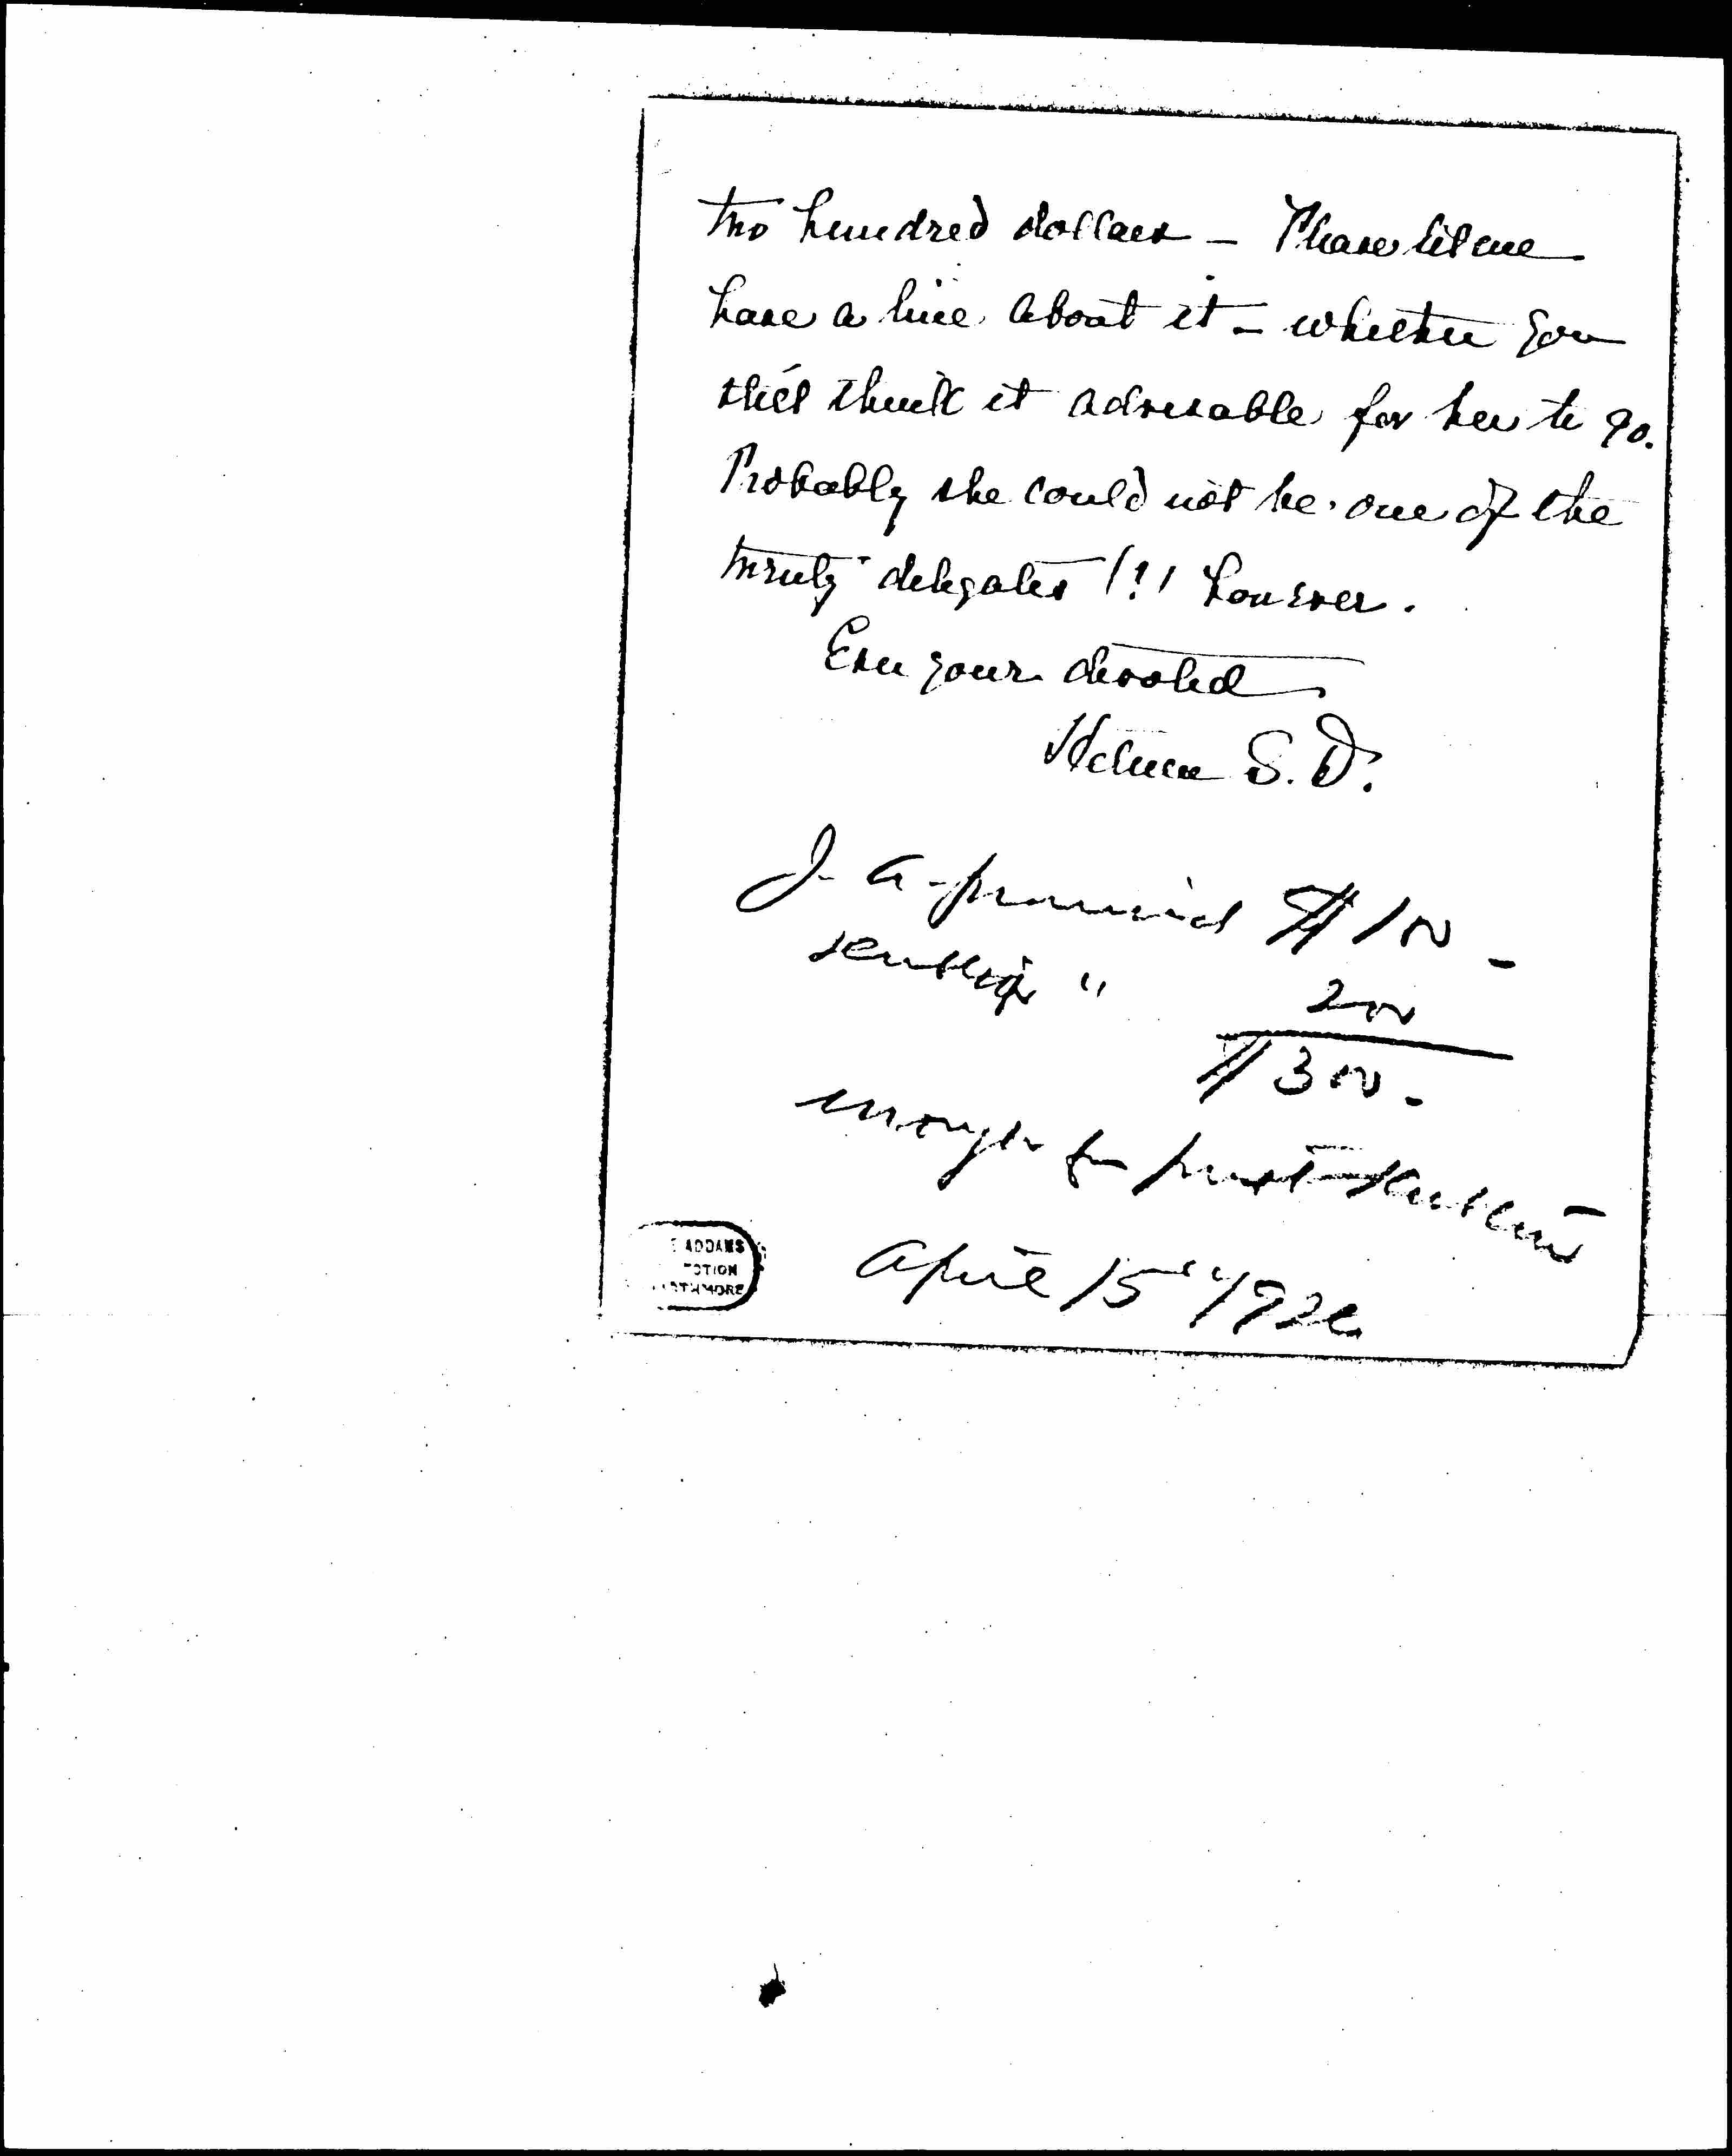 two hundred dollars - Please let me
have a line about it - whether you
still think it advisable for her to go.
Probably she could not be one of the
twenty delegates (!) however.
Ever your devoted
Helena S. D.
J. A. promised $100 -
" 200
$300.-
enough for
April 15" 192
E ADDAMS
CTION
RTHMORE